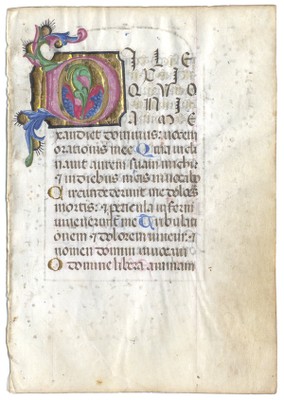 ILE
XI
QVO
NIA
E
xaudiet dominus: vocem
orationis mee Quia incli
nauit aurem suam michi:
et in diebus meis inuocabo
Circundederunt me dolores
mortis: et pericula inferni
inuenerunt me Tribulati
onem et dolorem inueni: et
nomen domini inuocaui
O domine libera animam